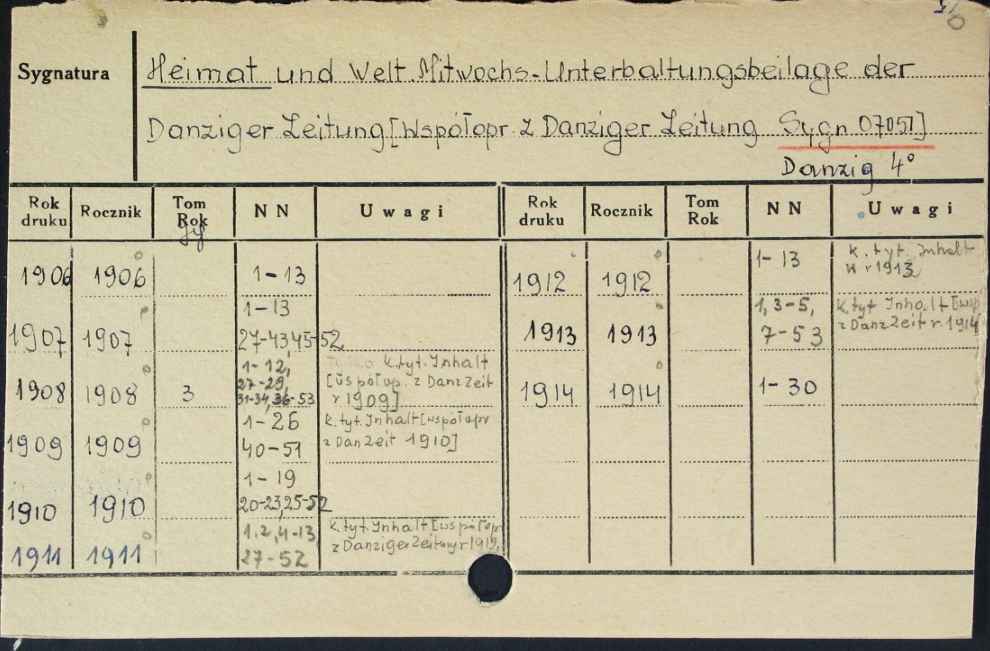 Sygnatura
Heimat und Welt Mitwochs-Unterhaltungsbeilage der
Danziger Zeitung [Współopr z Danziger Zeitung Sygn 07051]
Danzig 4°
Rok druku Rocznik Tom Rok NN Uwagi Rok druku Rocznik Tom Rok NN Uwagi
1906 1906 1-13
1907 1907 1-13
27-43,45-52
1908 1908 3 1-12,
27-29,
31-34,36-53
k.tyt. Inhalt
[współop. z DanzZeit
r 1909]
1909 1909 1-26
40-51
k.tyt. Inhalt [współopr
z DanZeit 1910]
1910 1910 1-19
20-23,25-52
1911 1911 1,2,4-13
27-52
k.tyt. Inhalt [współopr
z Danziger Zeitung r 1912,
1912 1912 1-13
k.tyt Inhalt
w r 1913
1913 1913 1,3-5,
7-53
k.tyt Inhalt [wsp
z DanzZeit r 1914
1914 1914 1-30